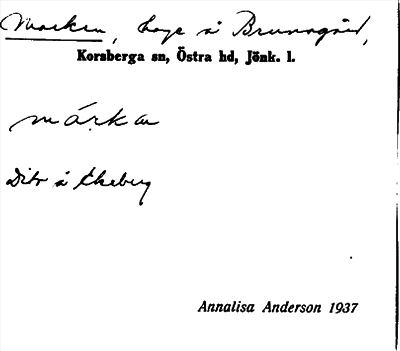 Marken, Lage å Brunnsgård,
Korsberga sn, Östra hd, Jönk. l.
márkan
Dito å Ekeberg
Annalisa Anderson 1937